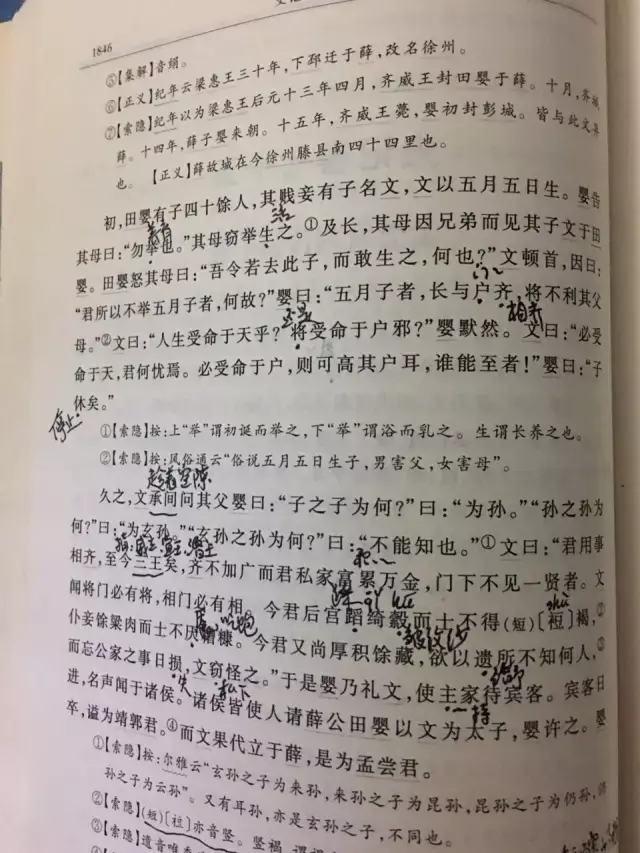 1846
⑤【集解】音绢。
⑥【正义】纪年云梁惠王三十年，下邳迁于薛，改名徐州。
⑦【索隐】纪年以为梁惠王后元十三年四月，齐威王封田婴于薛。十月，齐城
薛。十四年，薛子婴来朝。十五年，齐威王薨，婴初封彭城。皆与此文异
也。 【正义】薛故城在今徐州滕县南四十四里也。
初，田婴有子四十馀人，其贱妾有子名文，文以五月五日生。婴告
其母曰：“勿举也。”其母窃举生之。①及长，其母因兄弟而见其子文于田
婴。田婴怒其母曰：“吾令若去此子，而敢生之，何也？”文顿首，因曰：
“君所以不举五月子者，何故？”婴曰：“五月子者，长与户齐，将不利其父
母。”②文曰：“人生受命于天乎？将受命于户邪？”婴默然。文曰：“必受
命于天，君何忧焉。必受命于户，则可高其户耳，谁能至者！”婴曰：“子
休矣。”
停止
①【索隐】按：上“举”谓初诞而举之，下“举”谓浴而乳之。生谓长养之也。
②【索隐】按：风俗通云“俗说五月五日生子，男害父，女害母”。
趁着空隙
久之，文承间问其父婴曰：“子之子为何？”曰：“为孙。”“孙之孙为
何？”曰：“为玄孙。”“玄孙之孙为何？”曰：“不能知也。”①文曰：“君用事
相齐，至今三王矣，齐不加广而君私家富累万金，门下不见一贤者。文
闻将门必有将，相门必有相。今君后宫蹈绮縠而士不得（短）〔裋〕褐，②
仆妾馀粱肉而士不厌糟糠。今君又尚厚积馀藏，欲以遗所不知何人，③
而忘公家之事日损，文窃怪之。”于是婴乃礼文，使主家待宾客。宾客日
进，名声闻于诸侯。诸侯皆使人请薛公田婴以文为太子，婴许之。婴
卒，谥为靖郭君。④而文果代立于薛，是为孟尝君。
①【索隐】按：尔雅云“玄孙之子为来孙，来孙之子为昆孙，昆孙之子为仍孙，仍
孙之子为云孙”。又有耳孙，亦是玄孙之子，不同也。
②【索隐】（短）〔裋〕亦音竖。竖褐，谓
③【索隐】遗音唯季